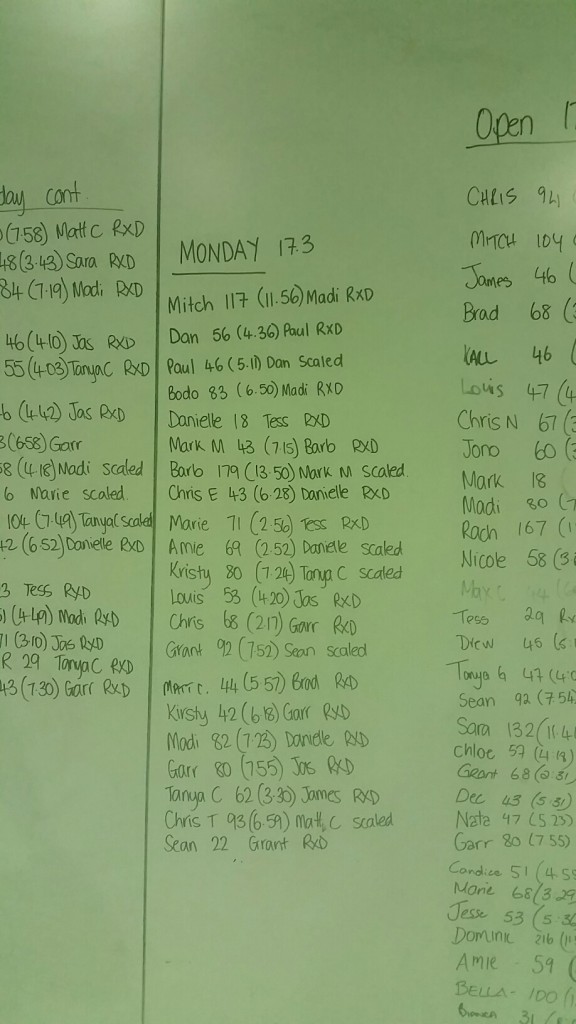 day cont.
(7.58) Matt C RXD
48 (3.43) Sara RXD
84 (7.19) Madi RXD
46 (4.10) Jas RXD
55 (4.03) Tanya C RXD
6 (4.42) Jas RXD
3 (6.58) Garr
58 (4.18) Madi scaled
6 Marie scaled.
104 (7.49) Tanya C scaled
42 (6.52) Danielle RXD
3 Tess RXD
51 (4.49) Madi RXD
71 (3.10) Jas RXD
R 29 Tanya C RXD
43 (7.30) Garr RXD
MONDAY 17.3
Mitch 117 (11.56) Madi RXD
Dan 56 (4.36) Paul RXD
Paul 46 (5.11) Dan Scaled
Bodo 83 (6.50) Madi RXD
Danielle 18 Tess RXD
Mark M 43 (7.15) Barb RXD
Barb 179 (13.50) Mark M scaled.
Chris E 43 (6.28) Danielle RXD
Marie 71 (2.56) Tess RXD
Amie 69 (2.52) Danielle scaled
Kristy 80 (7.24) Tanya C scaled
Louis 53 (4.20) Jas RXD
Chris 68 (2.17) Garr RXD
Grant 92 (7.52) Sean scaled
MATT C. 44 (5.57) Brad RXD
Kirsty 42 (6.18) Garr RXD
Madi 82 (7.23) Danielle RXD
Garr 80 (7.55) Jas RXD
Tanya C 62 (3.30) James RXD
Chris T 93 (6.59) Matt C scaled
Sean 22 Grant RXD
Open 17
CHRIS 94 (
MITCH 104
James 46 (
Brad 68 (
KALL 46 (
Louis 47 (4
Chris N 67 (3
Jono 60 (3
Mark 18
Madi 80 (7
Rach 167 (1
Nicole 58 (3
Max C
Tess 29 Rx
Drew 45 (5
Tanya G 47 (4
Sean 92 (7.54
Sara 132 (11.4
Chloe 57 (4.18)
Grant 68 (2.31
Dec 43 (5.31)
Nate 47 (5.25)
Garr 80 (7.55)
Candice 51 (4.55
Marie 68 (3.29
Jesse 53 (5.36
Dominic 216 (11
Amie - 59 (
BELLA - 100 (1
31